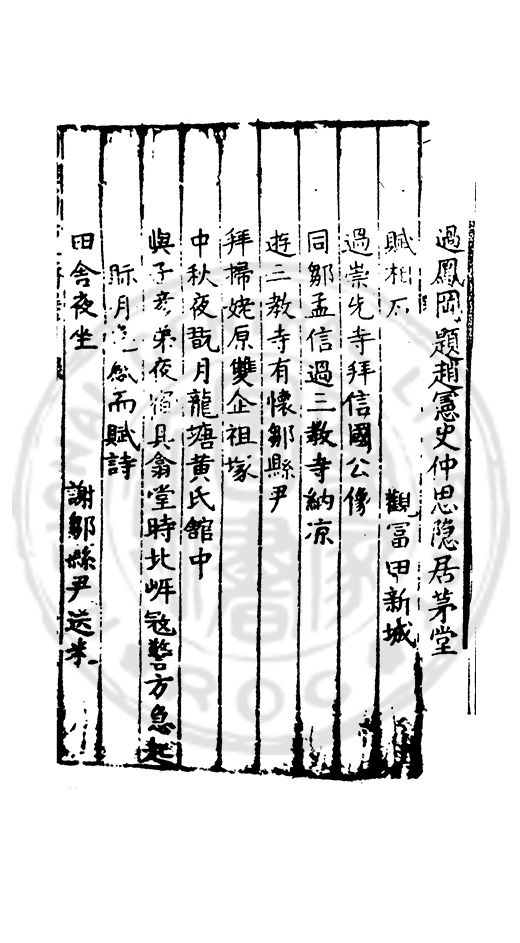 過鳳岡題趙憲史仲思隐居茅堂
賦桂石 觀冨田新城
過崇先寺拜信國公像
同鄒孟信過三教寺納凉
逰三教寺有懷鄒縣尹
拜掃姥原雙企祖塚
中秋夜翫月龍塘黄氏館中
與子彦弟夜宿具翁堂時北岸冦警方急起
眎月 然而賦詩
田舍夜坐 謝鄒縣尹送米